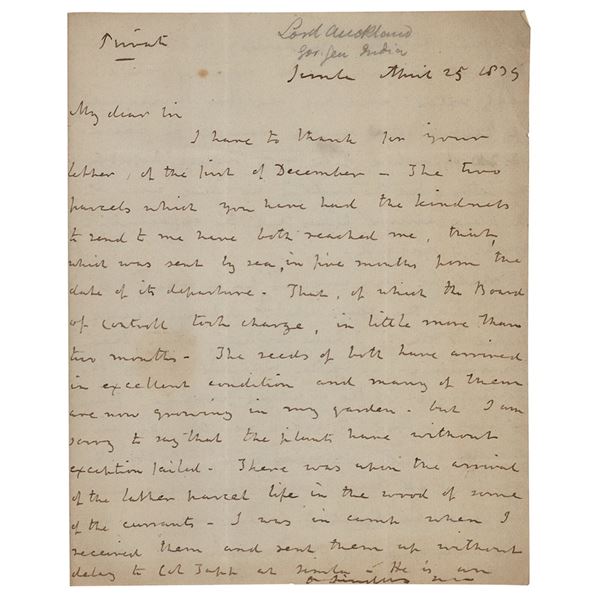 Private
Lord Auckland
Gov. Gen India
Simla April 25 1839
My dear Sir
I have to thank for your
letter, of the first of December - The two
parcels which you have had the kindness
to send to me have both reached me, that,
which was sent by sea, in five months from the
date of its departure - That, of which the Board
of Controll took charge, in little more than
two months - The seeds of both have arrived
in excellent condition and many of them
are now growing in my garden - but I am
sorry to say that the plants have without
exception failed - There was upon the arrival
of the latter parcel life in the wood of some
of the currants - I was in camp when I
received them and sent them up without
delay to Col at Simla - He is an